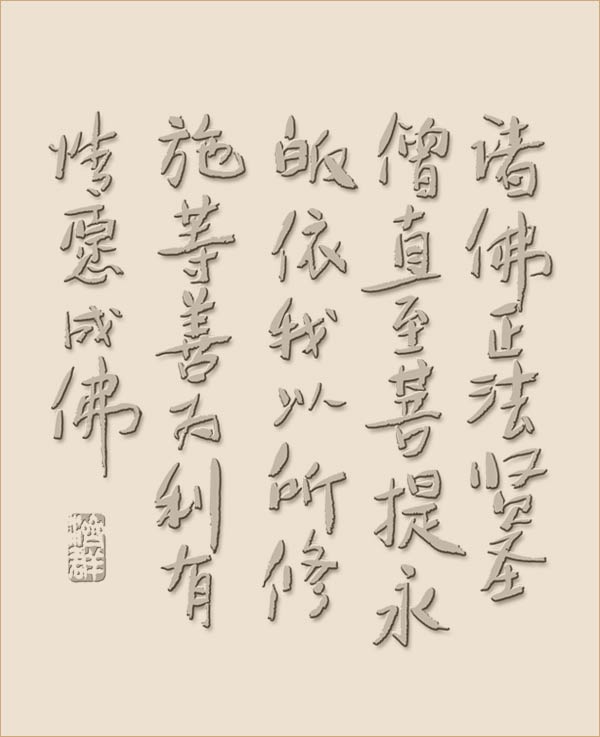 诸佛正法贤圣
僧直至菩提永
皈依我以所修
施等善为利有
情愿成佛
济群